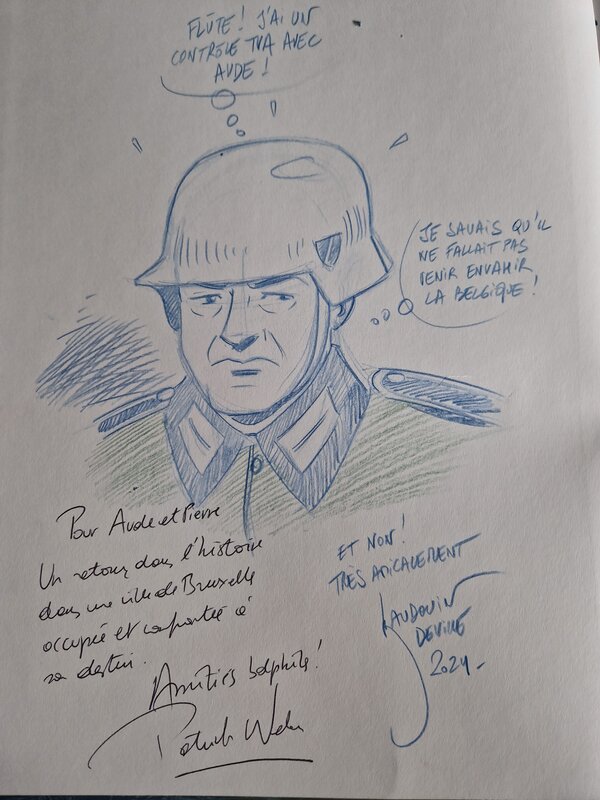 FLÛTE! J'AI UN
CONTRÔLE TVA AVEC
AUDE!
JE SAVAIS QU'IL
NE FALLAIT PAS
VENIR ENVAHIR
LA BELGIQUE!
Pour Aude et Pierre
Un retour dans l'histoire
dans une ville de Bruxelle
occupée et confrontée à
son destin.
Amitiés
Patrick Weber
ET NON!
TRÈS AMICALEMENT
BAUDOUIN
DEVILLE
2024